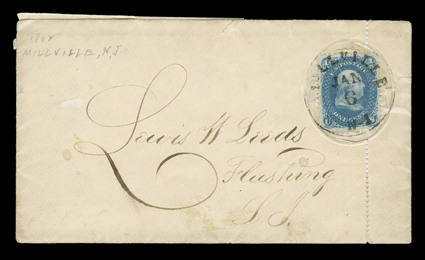 1862
MILLVILLE, N.J
MILLVILLE
JAN
6
N.J.
Lewis W Leeds
Flushing
L I